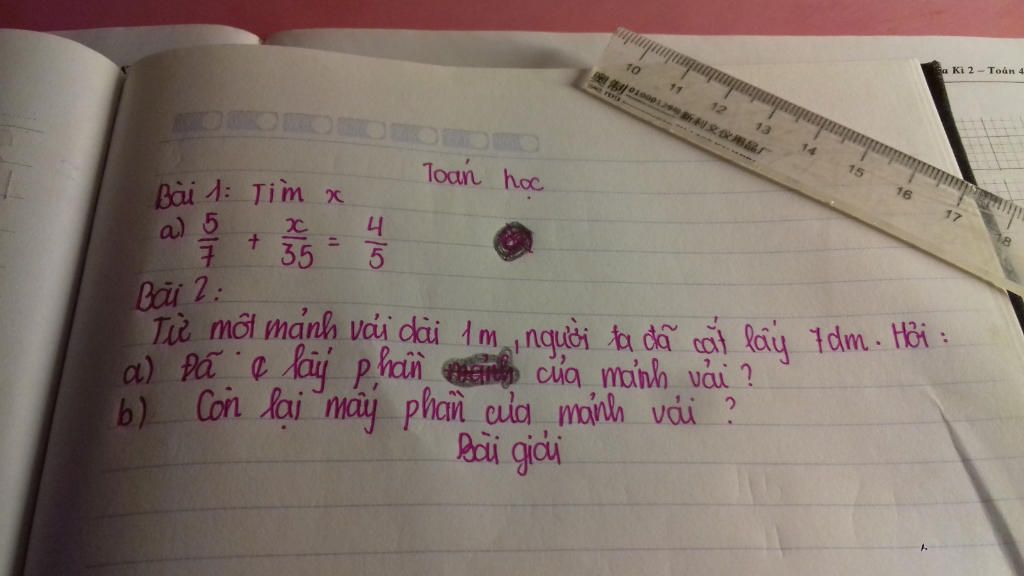 a Kì 2 - Toán 4
10 11 12 13 14 15 16 17 18
Toán học
Bài 1: Tìm x
a) 5/7 + x/35 = 4/5
Bài 2:
Từ một mảnh vải dài 1m, người ta đã cắt lấy 7dm. Hỏi:
a) Đã lấy phần của mảnh vải?
b) Còn lại mấy phần của mảnh vải?
Bài giải